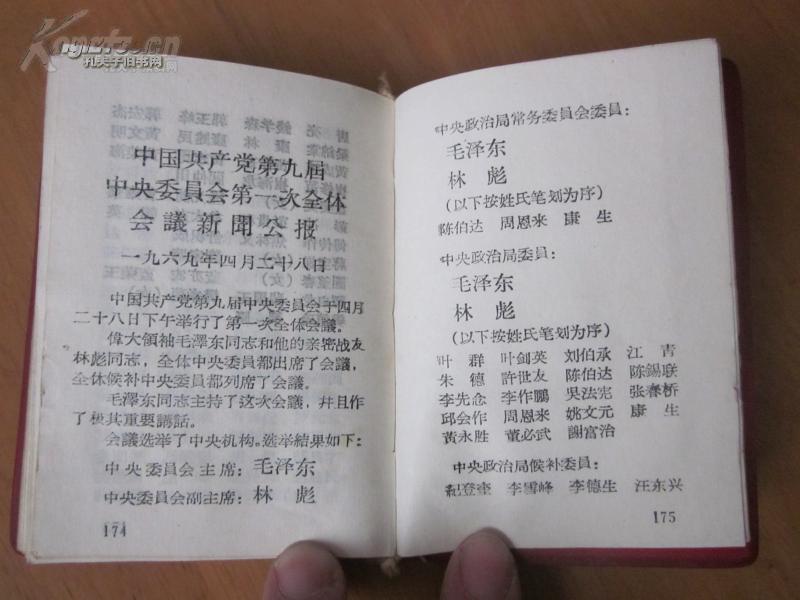 Kongfz.cn
孔夫子旧书网
中国共产党第九届
中央委員会第一次全体
会議新聞公报
一九六九年四月二十八日
中国共产党第九届中央委員会于四月
二十八日下午举行了第一次全体会議。
偉大領袖毛泽东同志和他的亲密战友
林彪同志，全体中央委員都出席了会議，
全体候补中央委員都列席了会議。
毛泽东同志主持了这次会議，幷且作
了极其重要講話。
会議选举了中央机构。选举結果如下：
中央委員会主席：毛泽东
中央委員会副主席：林 彪
174
中央政治局常务委員会委員：
毛泽东
林 彪
(以下按姓氏笔划为序)
陈伯达 周恩来 康 生
中央政治局委員：
毛泽东
林 彪
(以下按姓氏笔划为序)
叶 群 叶剑英 刘伯承 江 青
朱 德 許世友 陈伯达 陈錫联
李先念 李作鹏 吳法宪 张春桥
邱会作 周恩来 姚文元 康 生
黃永胜 董必武 謝富治
中央政治局候补委員：
紀登奎 李雪峰 李德生 汪东兴
175